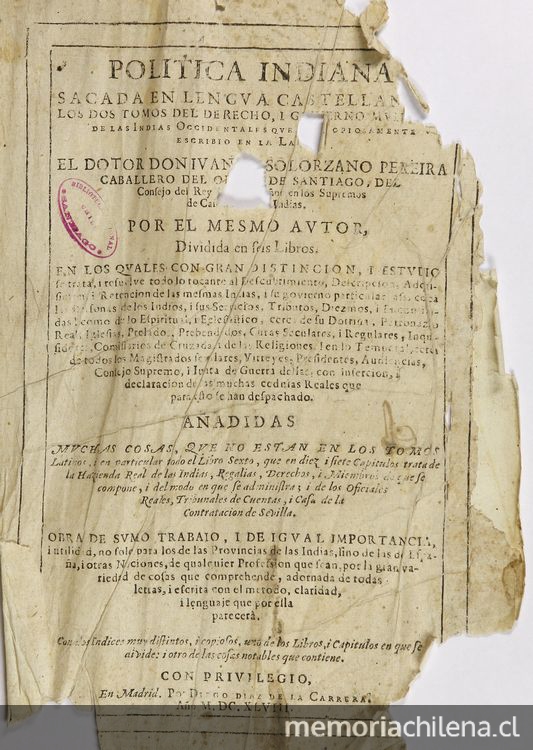 POLITICA INDIANA
SACADA EN LENGVA CASTELLAN
LOS DOS TOMOS DEL DERECHO, I GOVIERNO MV
DE LAS INDIAS OCCIDENTALES QVE OPIOSAMENTE
ESCRIBIO EN LA LA
EL DOTOR DON IVAN SOLORZANO PEREIRA
CABALLERO DEL O DE SANTIAGO, DEL
Consejo del Rey en los Supremos
de Ca Indias.
POR EL MESMO AVTOR,
Dividida en seis Libros.
EN LOS QVALES CON GRAN DISTINCION, I ESTVDIO
se trata, i resuelve todo lo tocante al Descubrimiento, Descripcion, Adqui-
sicion, i Retencion de las mesmas Indias, i su govierno particular, assi cerca
las personas de los Indios, i sus Servicios, Tributos, Diezmos, i Encomien-
das, como de lo Espiritual, i Eclesiastico, cerca de su Dotrina, Patronazgo
Real, Iglesias, Prelados, Prebendados, Curas Seculares, i Regulares, Inqui-
sidores, Comissarios de Cruzada, i de las Religiones. I en lo Temporal, cerca
de todos los Magistrados seculares, Virreyes, Presidentes, Audiencias,
Consejo Supremo, i Iunta de Guerra dellas, con insercion, i
declaracion de las muchas cedulas Reales que
para esto se han despachado.
AÑADIDAS
MVCHAS COSAS, QVE NO ESTAN EN LOS TOMOS
Latinos, i en particular todo el Libro Sexto, que en diez i siete Capitulos trata de
la Hazienda Real de las Indias, Regalias, Derechos, i Miembros de que se
compone, i del modo en que se administra; i de los Oficiales
Reales, Tribunales de Cuentas, i Casa de la
Contratacion de Sevilla.
OBRA DE SVMO TRABAIO, I DE IGVAL IMPORTANCIA,
i utilidad, no solo para los de las Provincias de las Indias, sino de las de Espa-
ña, i otras Naciones, de qualquier Profession que sean, por la gran va-
riedad de cosas que comprehende, adornada de todas
letras, i escrita con el metodo, claridad,
i lenguaje que por ella
parecerá.
Con dos Indices muy distintos, i copiosos, uno de los Libros, i Capitulos en que se
divide: i otro de las cosas notables que contiene.
CON PRIVILEGIO,
En Madrid. Por DIEGO DIAZ DE LA CARRERA.
Año M. DC. XLVIII.
memoriachilena.cl